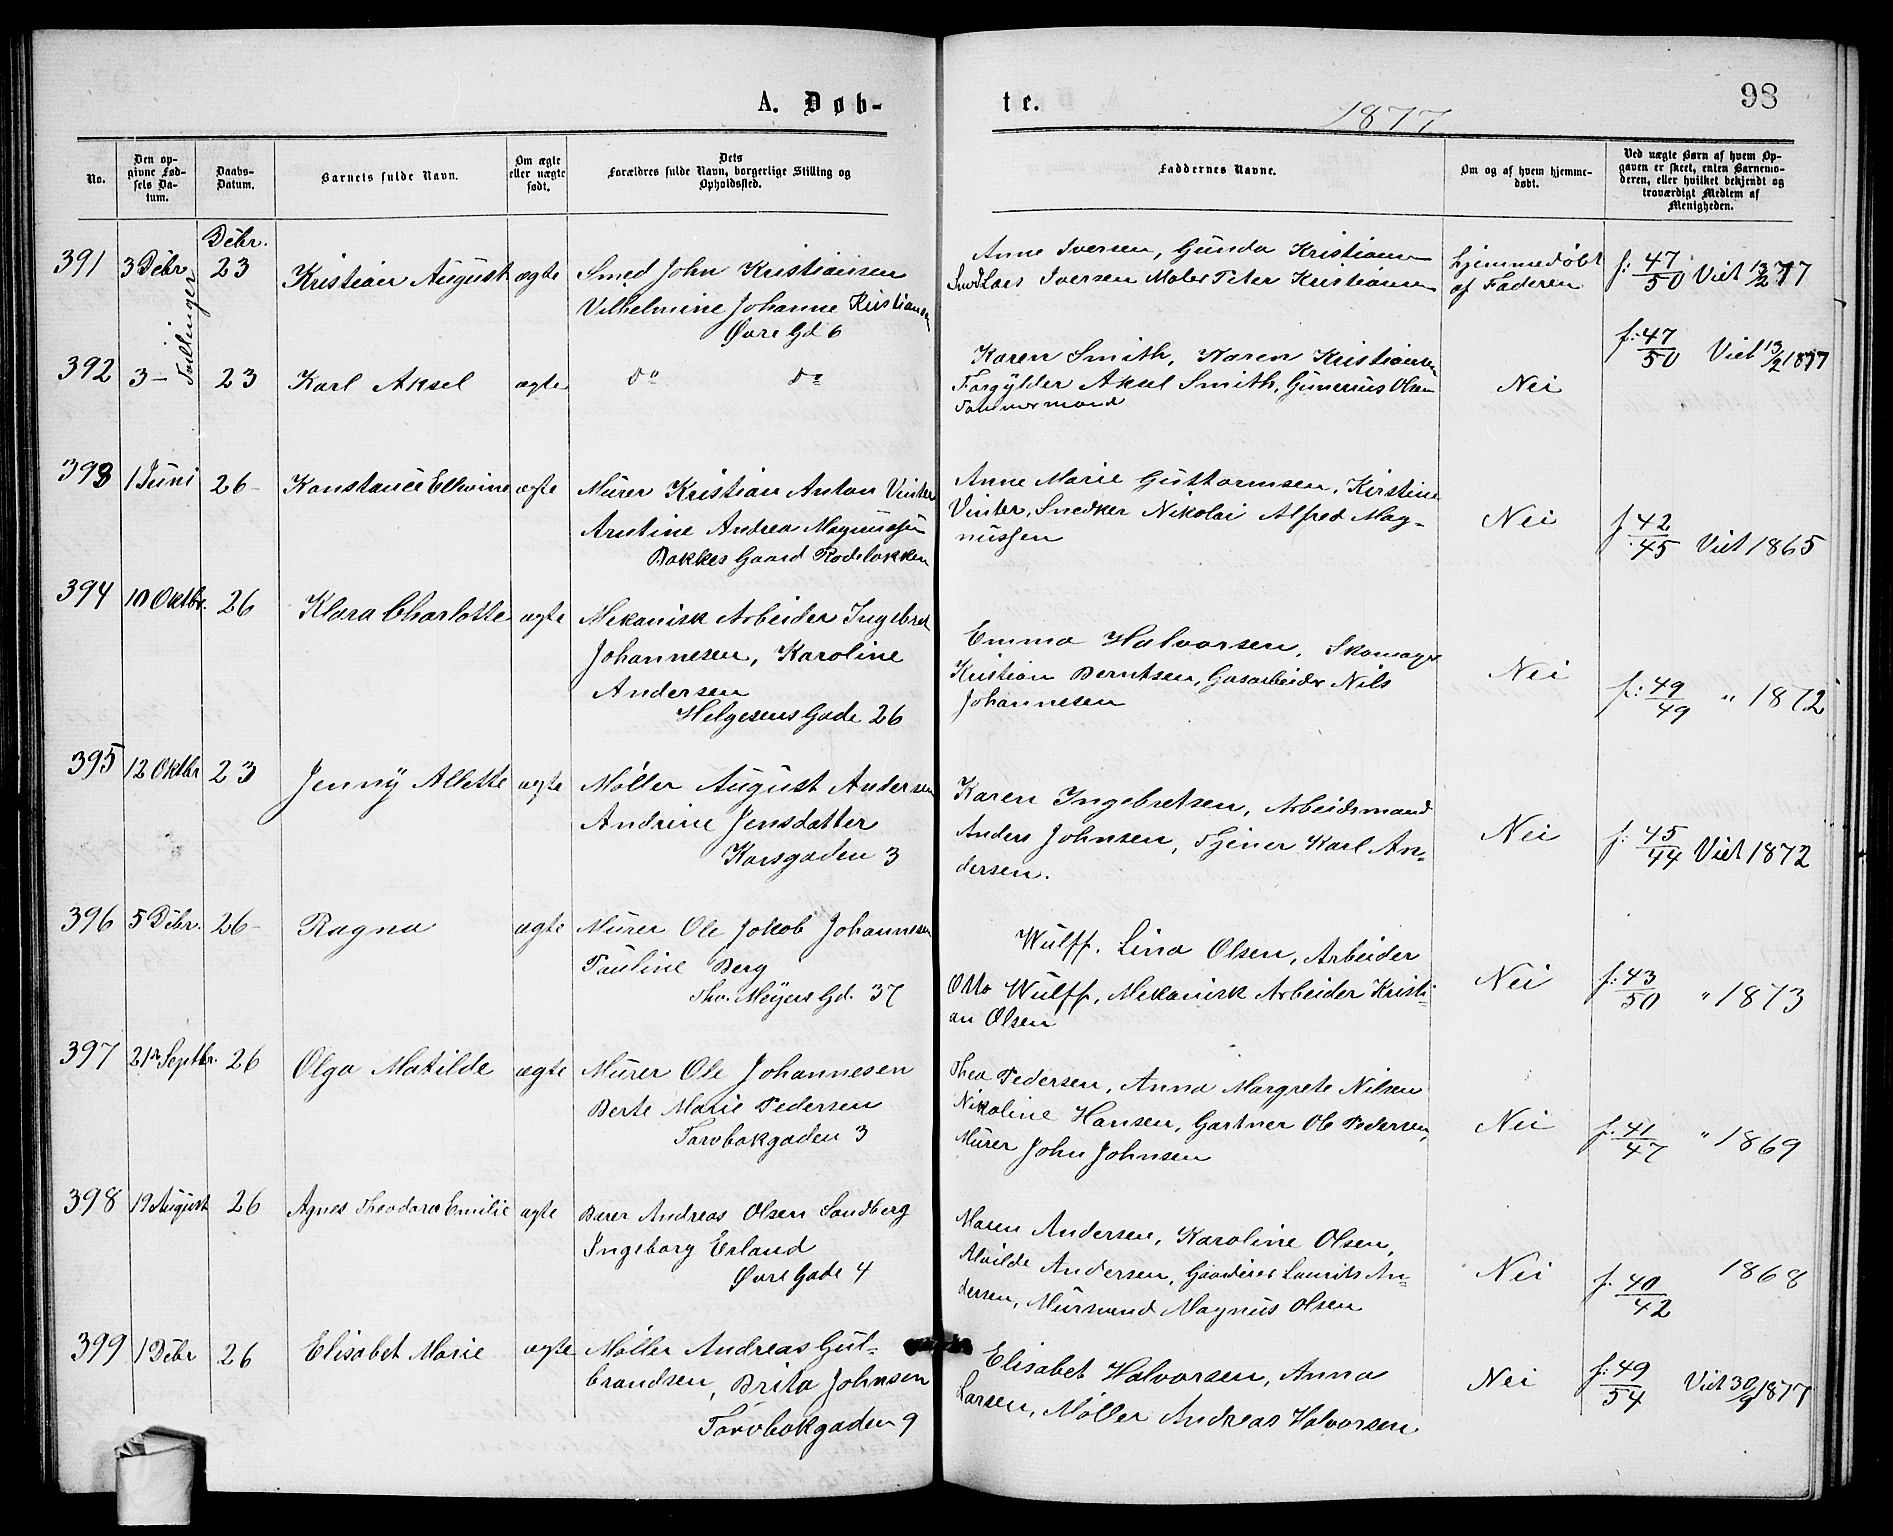 A. Døb-
te.
1877
98
No.
Den op-
givne Fød-
sels Da-
tum.
Daabs-
Datum.
Barnets fulde Navn.
Om ægte
eller uægte
født.
Dets
Forældres fulde Navn, borgerlige Stilling og
Opholdssted.
Faddernes Navne.
Om og af hvem hjemme-
døbt.
Ved uægte Børn af hvem Op-
gaven er skeet, enten Barnemo-
deren, eller hvilket bekjendt og
troværdigt Medlem af
Menigheden.
Debr.
391 3 Debr 23 Kristian August ægte Smed John Kristiansen
Vilhelmine Johanne Kristiansen
Øvre Gd 6
Anne Iversen, Gunda Kristiansen
Lars Iversen Maler Peter Kristiansen
hjemmedøbt
af Faderen
f: 47/50 Viet 13/2 77
Tvillinger
392 3 – 23 Karl Aksel ægte do do
Karen Smith, Karen Kristiansen
Forgylder Aksel Smith, Gunerius Olsen
Tømmermand
Nei
f: 47/50 Viet 13/2 1877
393 1 Juni 26 – Konstance Elevine ægte Murer Kristian Anton Vinter
Arntine Andrea Magnussen
Bakkes Gaard Rodeløkken
Anne Marie Guttormsen, Kirstine
Vinter, Snedker Nikolai Alfred Mag-
nussen
Nei
f 42/45 Viet 1865
394 10 Oktbr. 26 Klara Charlotte ægte Mekanisk Arbeider Ingebret
Johannesen, Karoline
Andersen
Helgesens Gade 26
Emma Halvorsen, Skomager
Kristian Berntsen, Gasarbeider Nils
Johannesen
Nei
f: 49/49 " 1872
395 12 Oktbr 23 Jenny Allette ægte Møller August Andersen
Andrine Jensdatter
Korsgaden 3
Karen Ingebretsen, Arbeidsmand
Anders Johnsen, Tjener Karl An-
dersen.
Nei
f: 45/44 Viet 1872
396 5 Debr. 26 – Ragna ægte Murer Ole Jakob Johannesen
Pauline Berg
Thv. Meyers Gd. 37
Wulff. Lina Olsen, Arbeider
Otto Wulff, Mekanisk Arbeider Kristi-
an Olsen
Nei
f: 43/50 " 1873
397 21 Septbr. 26 Olga Matilde ægte Murer Ole Johannesen
Berte Marie Pedersen
Torvbakgaden 3
Thea Pedersen, Anna Margrete Nilsen
Nikoline Hansen, Gartner Ole Pedersen,
Murer John Johnsen
Nei
f. 41/47 " 1869
398 19 August 26 Agnes Theodora Emilie ægte Bærer Andreas Olsen Sandberg
Ingeborg Erland
Øvre Gade 4
Maren Andersen, Karoline Olsen,
Alvilde Andersen, Laurits An-
dersen, Mursvend Magnus Olsen
Nei
f. 40/42 1868
399 1 Debr 26 Elisabet Marie ægte Møller Andreas Gul-
brandsen, Brita Johnsen
Torvbakgaden 9
Elisabet Halvorsen, Anna
Larsen, Møller Andreas Halvorsen
Nei
f: 49/54 Viet 30/9 1877